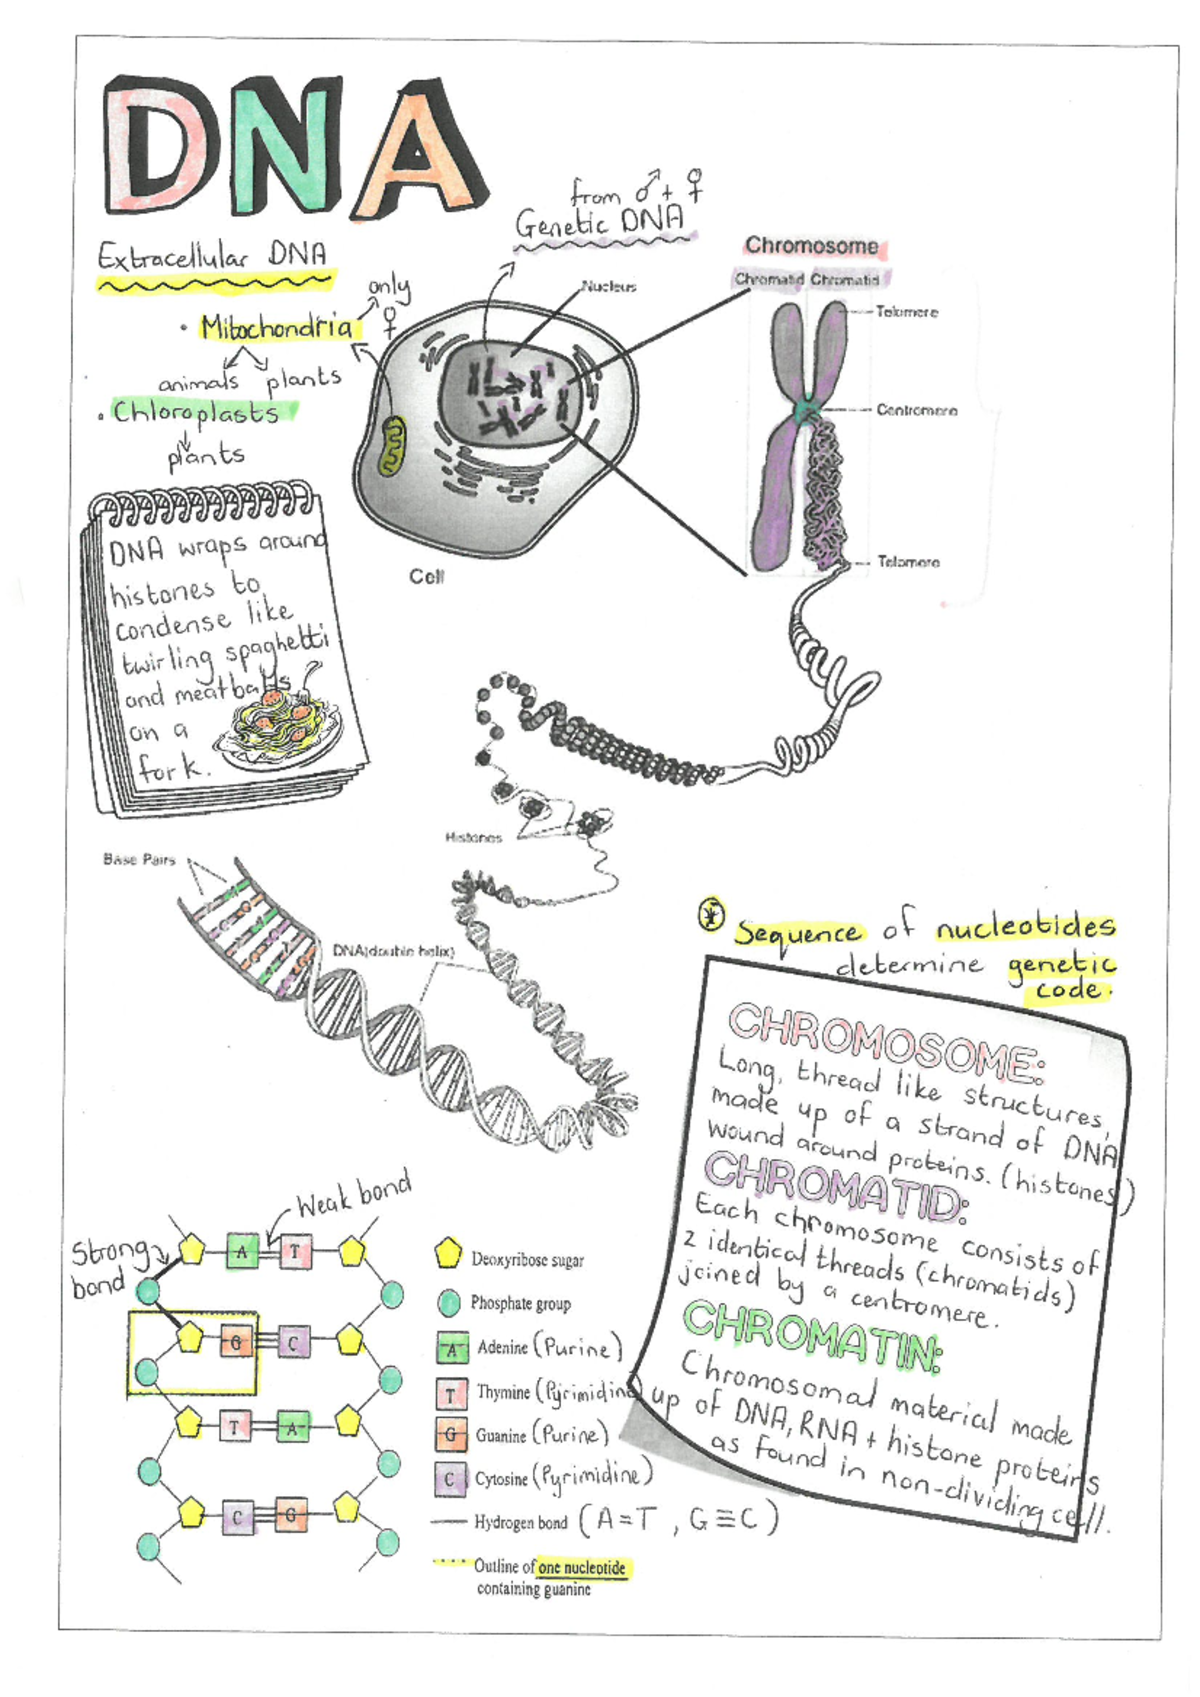 DNA
from ♂ + ♀
Genetic DNA
Extracellular DNA
only
♀
• Mitochondria
animals plants
• Chloroplasts
plants
Nucleus
Cell
Chromosome
Chromatid Chromatid
Telomere
Centromere
Telomere
DNA wraps around
histones to
condense like
twirling spaghetti
and meatballs
on a
fork.
Histones
Base Pairs
DNA(double helix)
Sequence of nucleotides
determine genetic
code.
CHROMOSOME:
Long, thread like structures,
made up of a strand of DNA
wound around proteins. (histones)
CHROMATID:
Each chromosome consists of
2 identical threads (chromatids)
joined by a centromere.
CHROMATIN:
Chromosomal material made
up of DNA, RNA + histone proteins
as found in non-dividing cell.
Weak bond
Strong
bond
A T
G C
T A
C G
Deoxyribose sugar
Phosphate group
A Adenine (Purine)
T Thymine (Pyrimidine)
G Guanine (Purine)
C Cytosine (Pyrimidine)
Hydrogen bond (A=T , G≡C)
Outline of one nucleotide
containing guanine